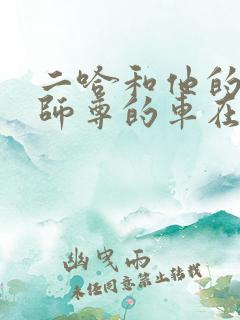 二哈和他的
師尊的車在
幽曳雨
未经同意禁止转载